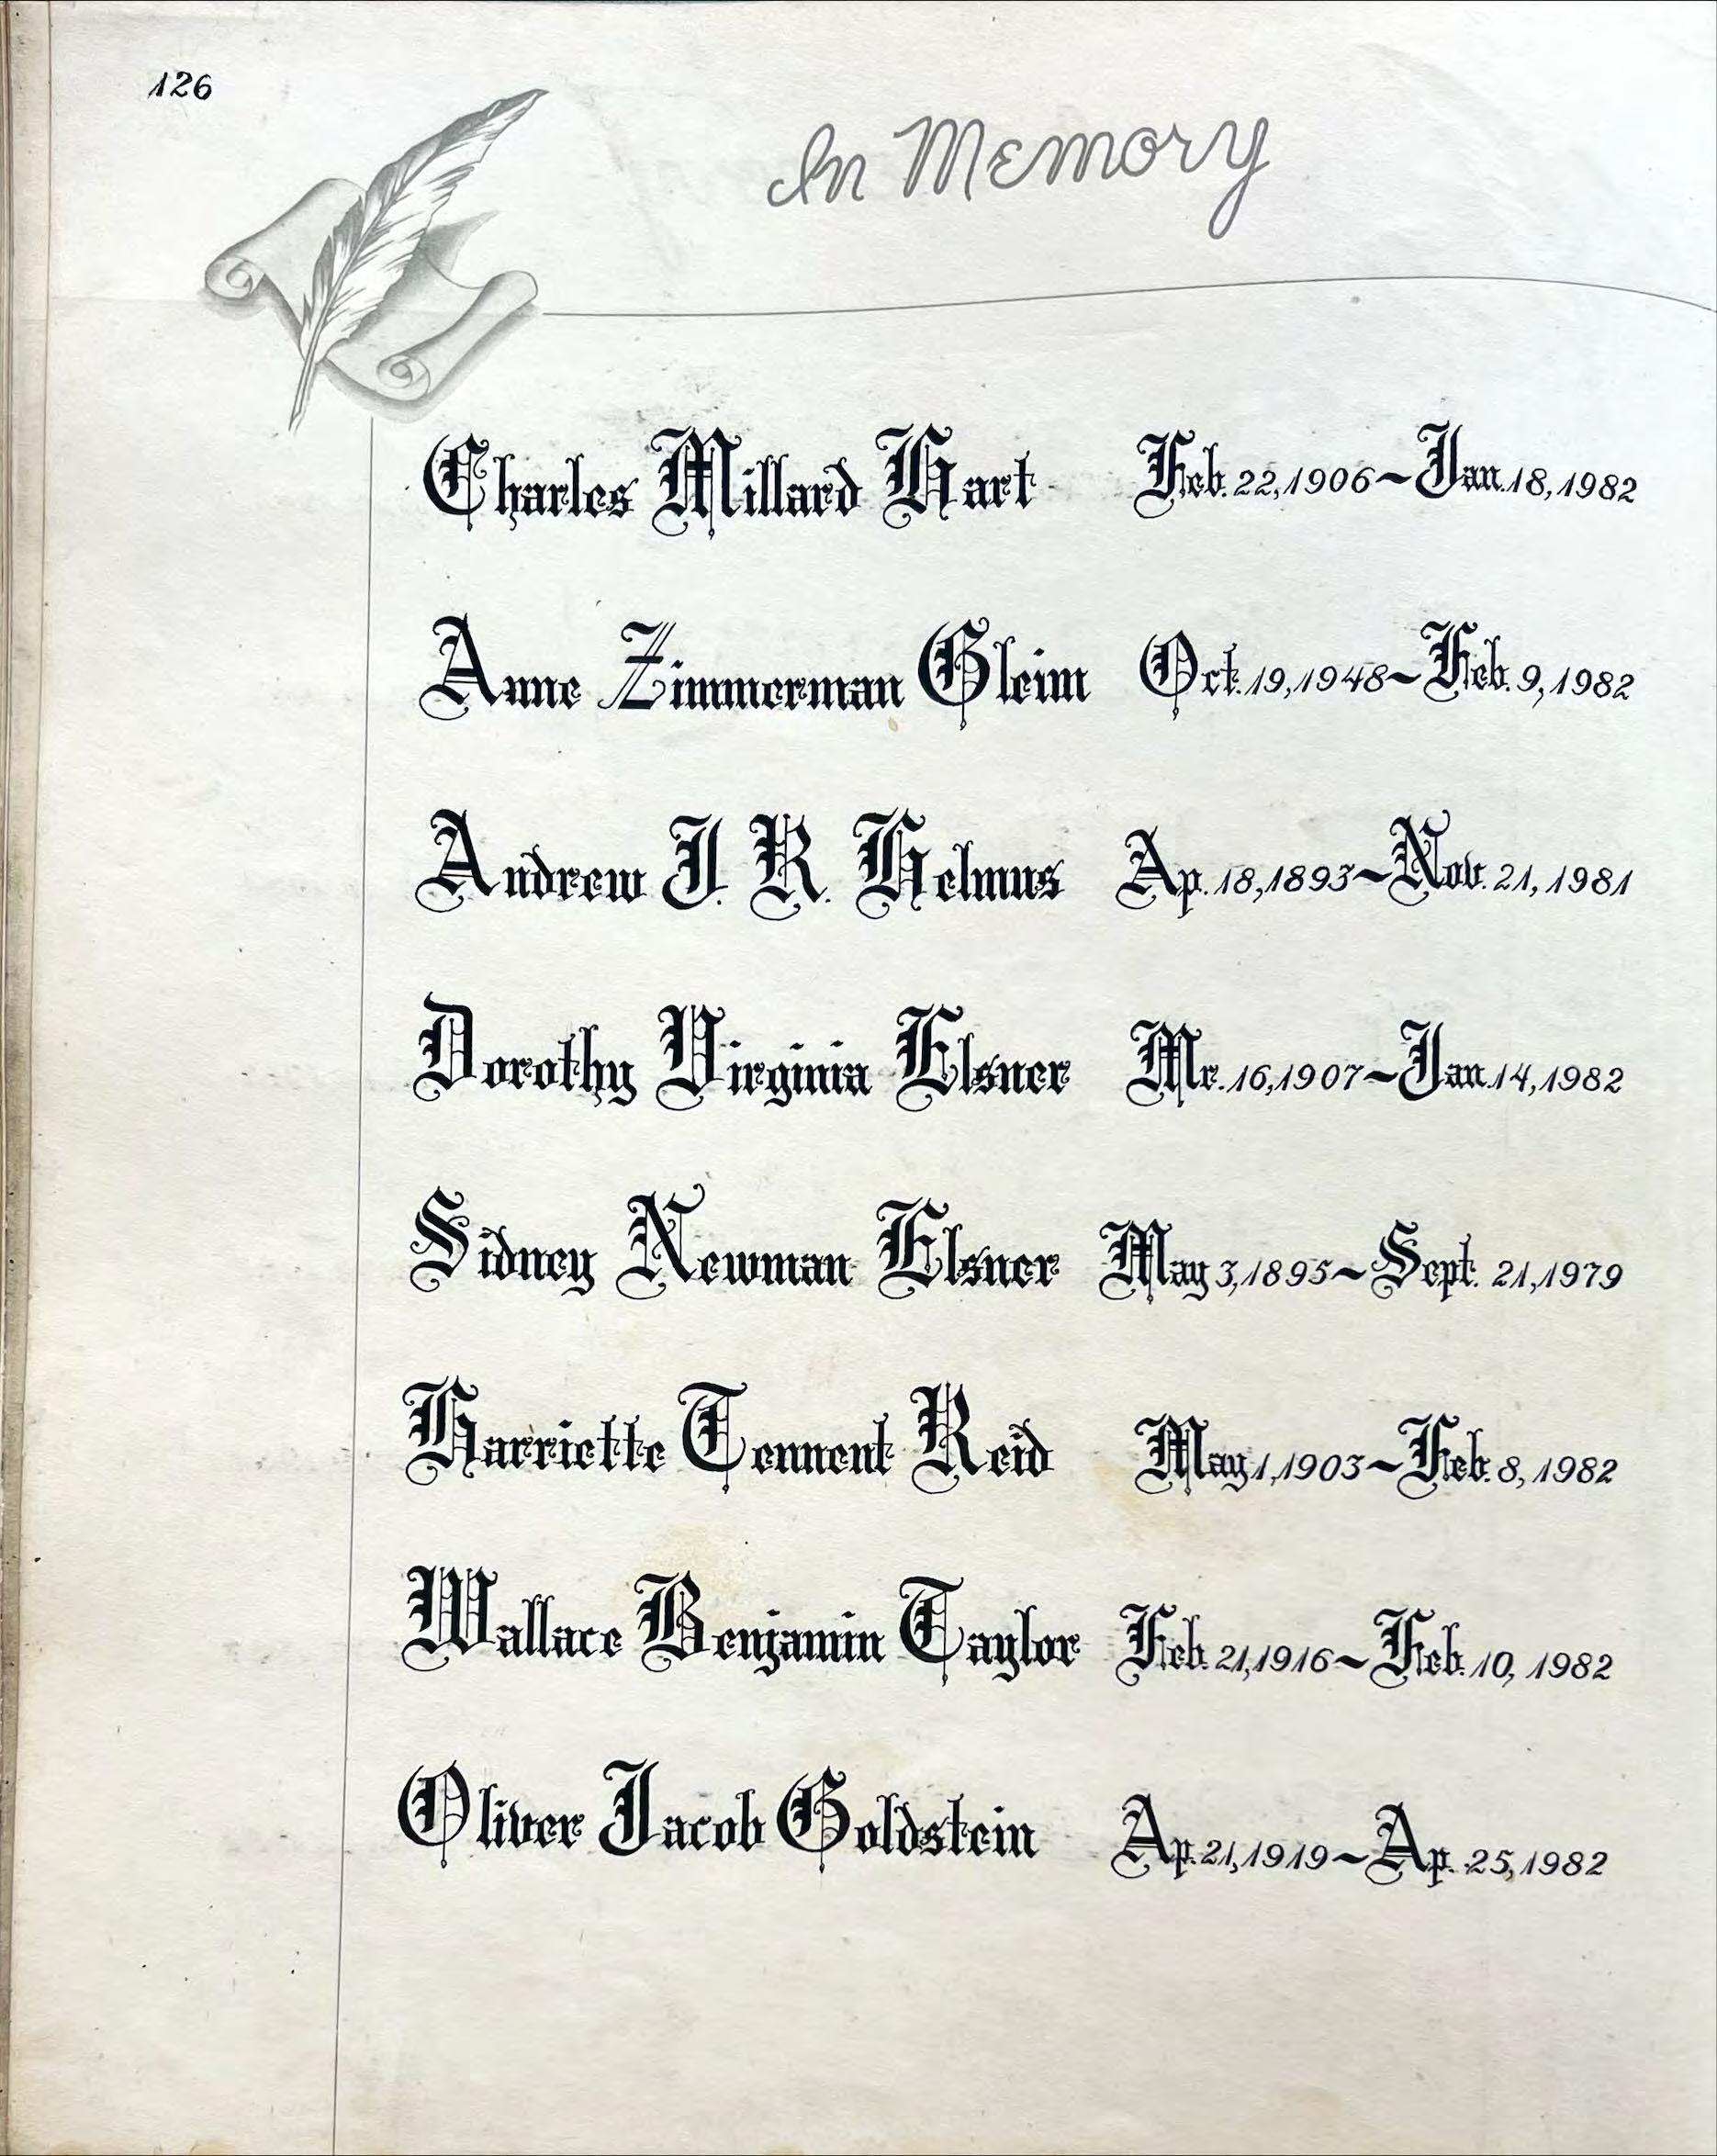 126
In Memory
Charles Millard Hart Feb. 22, 1906~Jan. 18, 1982
Anne Zimmerman Gleim Oct. 19, 1948~Feb. 9, 1982
Andrew J. R. Helmus Ap. 18, 1893~Nov. 21, 1981
Dorothy Virginia Elsner Mr. 16, 1907~Jan. 14, 1982
Sidney Newman Elsner May 3, 1895~Sept. 21, 1979
Harriette Tennent Reid May 1, 1903~Feb. 8, 1982
Wallace Benjamin Taylor Feb. 21, 1916~Feb. 10, 1982
Oliver Jacob Goldstein Ap. 21, 1919~Ap. 25, 1982